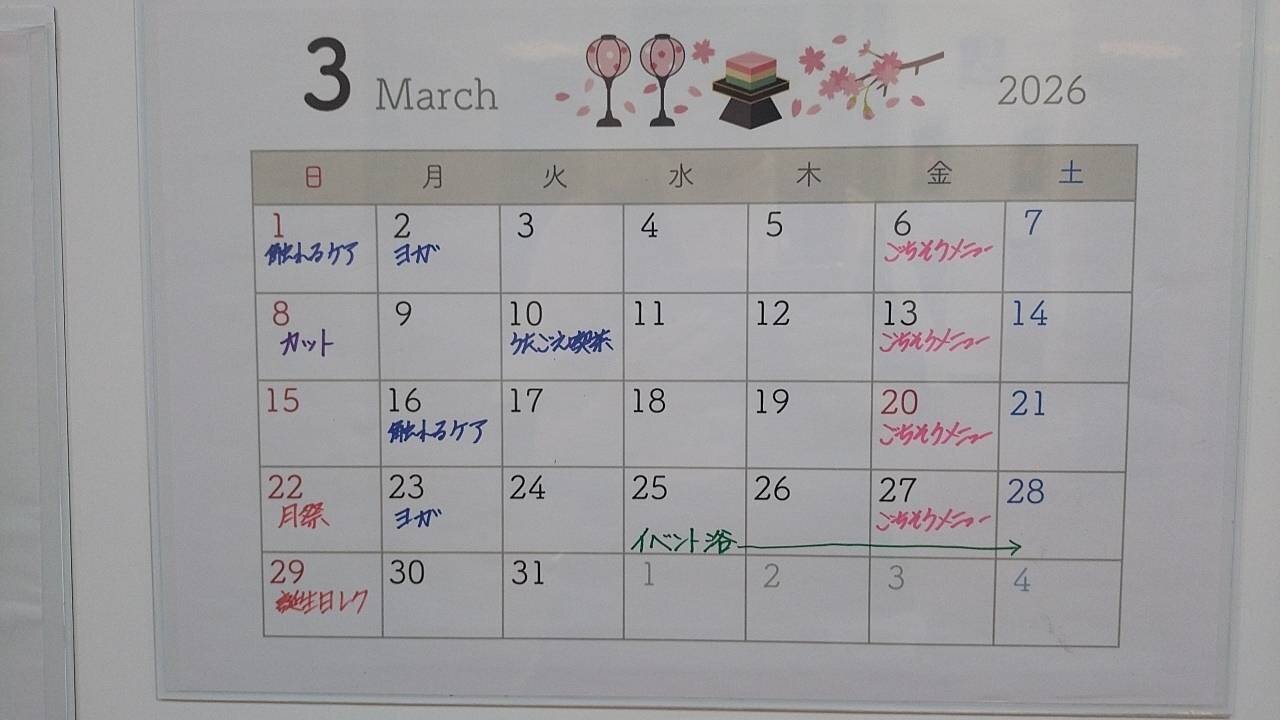 3 March 2026
日 月 火 水 木 金 土
1 2 3 4 5 6 7
触れるケア ヨガ ごちそうメニュー
8 9 10 11 12 13 14
カット うたごえ喫茶 ごちそうメニュー
15 16 17 18 19 20 21
触れるケア ごちそうメニュー
22 23 24 25 26 27 28
月祭 ヨガ ごちそうメニュー
イベント浴
29 30 31 1 2 3 4
誕生日レク